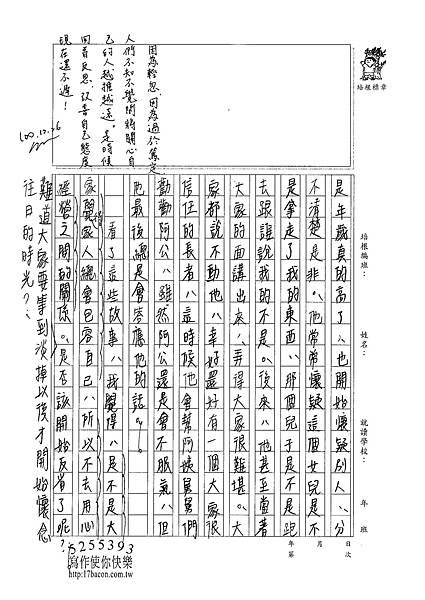 培根標章
因為輕忽，因為過於篤定
人們不知不覺間將關心自
己的人越推越遠。是時候
回首反思，改善自己態度
現在還不遲！
100.12.26
培根編班：
姓名：
就讀學校：
年 班
年 月 日
第 次
是年歲真的高了，也開始懷疑別人，分
不清楚是非。他常常懷疑這個女兒是不
是拿走了我的東西，那個兒子是不是跑
去跟誰說我的不是。後來，他甚至當著
大家的面講出來，弄得大家很難堪。大
家都說不動他，幸好還好有一個大家很
信任的長者，這時候他會幫阿姨舅舅們
勸勸阿公，雖然阿公還是會不服氣，但
他最後總是會答應他的話。
看了這些故事，我覺得，是不是大
家覺得家人總會包容自己，所以不去用心
經營之間的關係。是否該開始反省了呢？
難道大家要等到淡掉以後才開始懷念
往日的時光？
5255393
寫作使你快樂
http://17bacon.com.tw